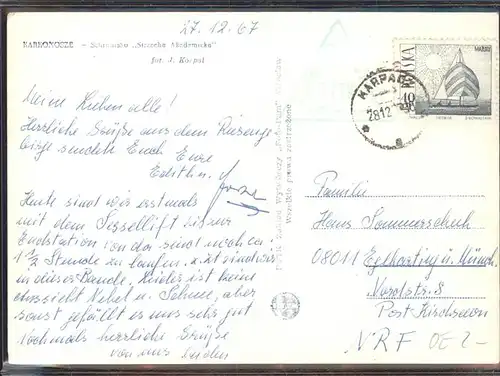 27.12.67
KARKONOSZE - Schronisko „Strzecha Akademicka"
fot. J. Korpal
Meine Lieben alle!
Herrliche Grüße aus dem Riesenge-
birge senden Euch Eure
Edith u.
Heute sind wir erstmals
mit dem Sessellift bis zur
Endstation von da sind noch ca.
1 1/2 Stunde zu laufen, z.Zt sind wir
in dieser Baude. Leider ist keine
Aussicht Nebel u. Schnee, aber
sonst gefällt es uns sehr gut
Nochmals herrliche Grüße
von uns beiden
Wszelkie prawa zastrzeżone
KARPACZ
28.12
POLSKA
40
GR
Familie
Hans Sommerschuh
08011 Eglharting b. Münch.
Nordstr. 8
Post Kirchseeon
NRF